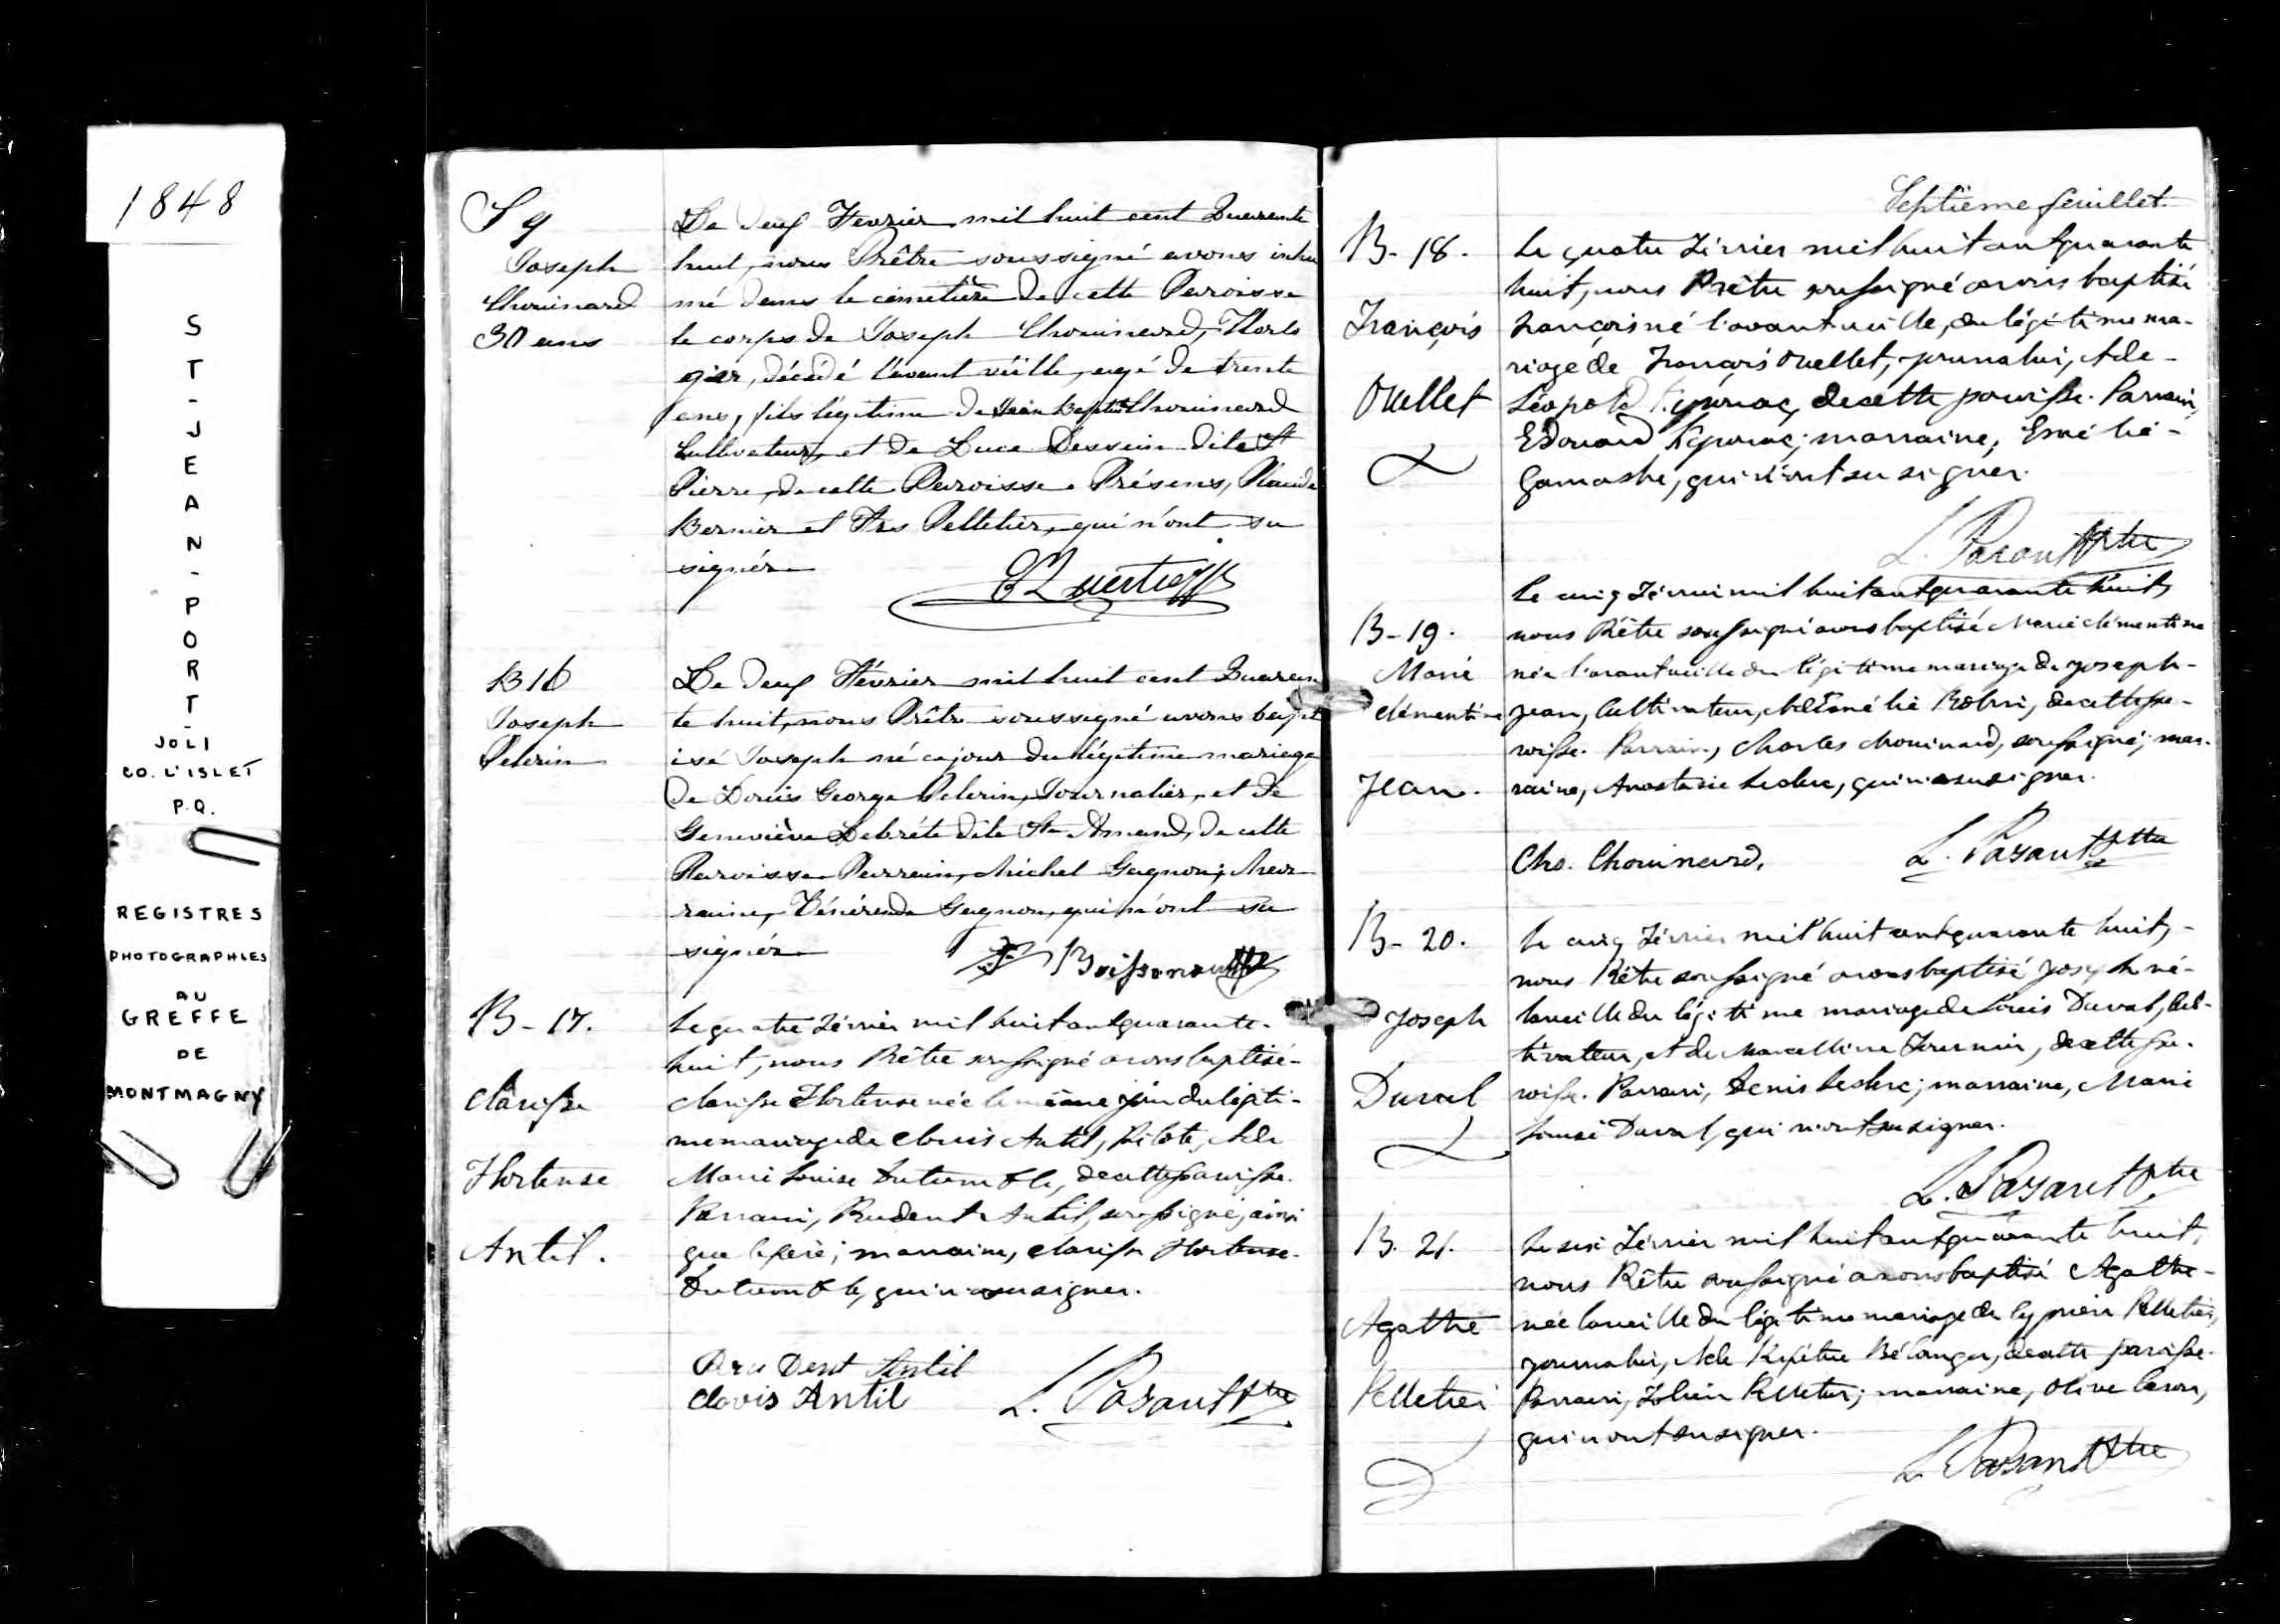 1848
ST-JEAN-PORT-
JOLI
CO. L'ISLET
P.Q.
REGISTRES
PHOTOGRAPHIES
AU
GREFFE
DE
MONTMAGNY
S 9
Joseph
Chouinard
30 ans
Le deux Fevrier mil huit cent Quarante
huit, nous Prêtre soussigné avons inhu
mé dans le cimetière de cette Paroisse
le corps de Joseph Chouinard, Horlo
ger, décédé l'avant veille, agé de trente
ans, fils légitime de Jean Baptiste Chouinard
Cultivateur, et de Luce Dessein dite St
Pierre, de cette Paroisse. Présens, Placide
Bernier et Frs Pelletier, qui n'ont su
signér
B 16
Joseph
Pelerin
Le deux Février mil huit cent Quaran
te huit, nous Prêtre soussigné avons bapt
isé Joseph né ce jour du légitime mariage
de Louis George Pelerin, Journalier, et de
Geneviève dite St Amand, de cette
Paroisse Parrain, Michel Gagnon; Mar
raine, Vénérende Gagnon, qui n'ont su
signér
Boissonnault
B-17.
Clarisse
Hortense
Antil.
Le quatre Février mil huit cent quarante-
huit, nous Prêtre soussigné avons baptisé-
Clarisse Hortense née le même jour du légiti-
me mariage de Clovis Antil, Pilote, et de
Marie Louise de cette paroisse.
Parrain, Prudent Antil, soussigné, ainsi
que le père; marraine, Clarisse Hortense-
qui n'a su signer.
Pru Dent Antil
Clovis Antil
L. Parant Ptre
Septième feuillet.
B-18.
François
Ouellet
Le quatre Février mil huit cent quarante
huit, nous Prêtre soussigné avons baptisé
François né l'avant veille, du légitime ma-
riage de François Ouellet, journalier, et de-
Léopold Kérouac, de cette paroisse. Parrain,
Edouard Kérouac; marraine, Emélie-
Gamashe, qui n'ont su signer.
L. Parant Ptre
B-19.
Marie
Clémentine
Jean.
Le cinq Février mil huit cent quarante huit,
nous Prêtre soussigné avons baptisé Marie Clémentine
née l'avant veille du légitime mariage de Joseph-
Jean, Cultivateur, et d'Emélie Robin, de cette pa-
roisse. Parrain, Charles Chouinard, soussigné; mar-
raine, Anastasie Leclerc, qui n'a su signer.
Chs. Chouinard,
L. Parant Ptre
B-20.
Joseph
Duval
Le cinq Février mil huit cent quarante huit,-
nous Prêtre soussigné avons baptisé Joseph né-
la veille du légitime mariage de Louis Duval, Cul-
tivateur, et de Marcelline Fournier, de cette pa-
roisse. Parrain, Denis Leclerc; marraine, Marie
Louise Duval, qui n'ont su signer.
L. Parant Ptre
B. 21.
Agathe
Pelletier
Le six Février mil huit cent quarante huit,
nous Prêtre soussigné avons baptisé Agathe-
née la veille du légitime mariage de Cyprien Pelletier,
journalier, et de Bélanger, de cette paroisse.
Parrain, Pelletier; marraine, Olive Caron,
qui n'ont su signer.
L. Parant Ptre